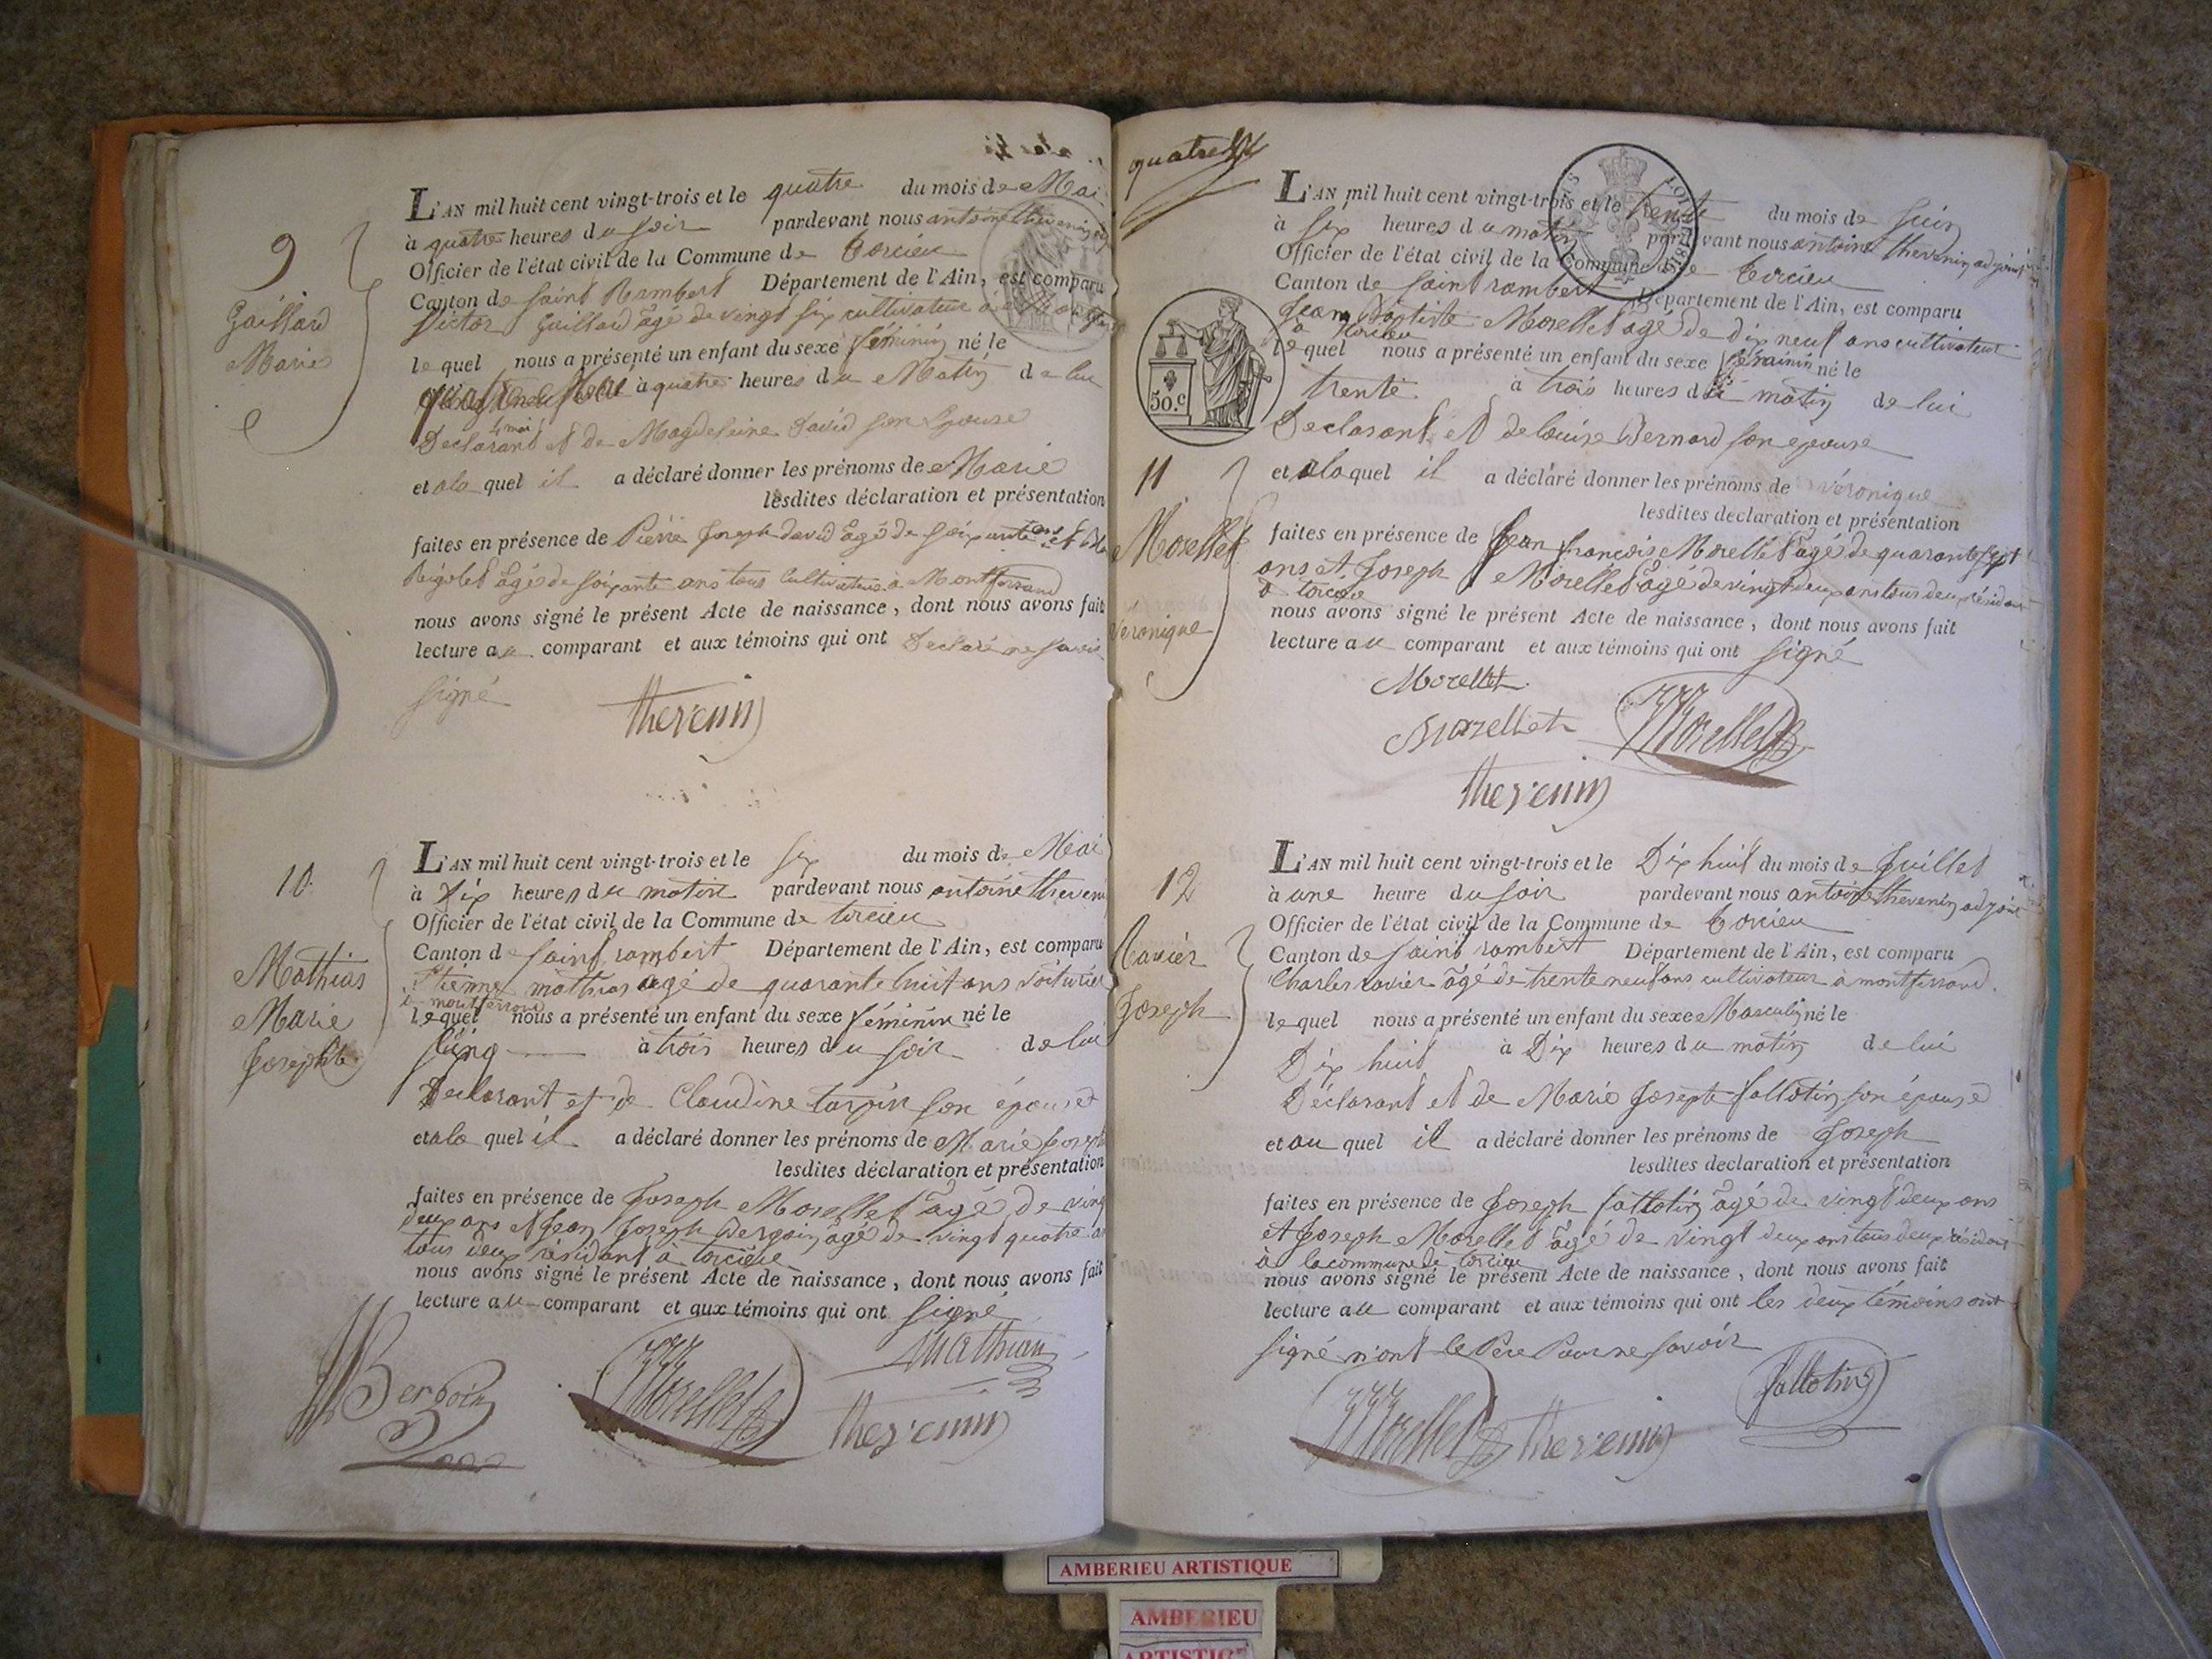 9
Gaillard
Marie
L'AN mil huit cent vingt-trois et le quatre du mois de Mai
à quatre heures du soir pardevant nous antoine thevenin
Officier de l'état civil de la Commune de torcieu
Canton de saint Rambert Département de l'Ain, est comparu
Victor Gaillard âgé de vingt six cultivateur à
le quel nous a présenté un enfant du sexe féminin né le
à quatre heures du Matin de lui
4 mai
Declarant et de Magdeleine David son Epouse
et a la quel il a déclaré donner les prénoms de Marie
lesdites déclaration et présentation
faites en présence de Pierre Joseph david âgé de soixante ans et
Rigolet âgé de soixante ans tous Cultivateurs à Montferrand
nous avons signé le présent Acte de naissance, dont nous avons fait
lecture au comparant et aux témoins qui ont Declaré ne savoir
signé
thevenin
10
Mathias
Marie
Josephte
L'AN mil huit cent vingt-trois et le six du mois de Mai
à Dix heures du matin pardevant nous antoine thevenin
Officier de l'état civil de la Commune de torcieu
Canton de saint rambert Département de l'Ain, est comparu
Etienne mathias agé de quarante huit ans voiturier
à montferrand
le quel nous a présenté un enfant du sexe féminin né le
cinq à trois heures du soir de lui
Declarant et de Claudine tarpin son épouse
et a la quel il a déclaré donner les prénoms de Marie Joseph
lesdites déclaration et présentation
faites en présence de Joseph Morellet âgé de vingt
deux ans et Jean Joseph Bergoin âgé de vingt quatre ans
tous deux résidant à torcieu
nous avons signé le présent Acte de naissance, dont nous avons fait
lecture au comparant et aux témoins qui ont signé
Bergoin
Morellet
mathias
thevenin
quatre
L'AN mil huit cent vingt-trois et le trente du mois de Juin
à six heures du matin pardevant nous antoine thevenin adjoint
Officier de l'état civil de la Commune de torcieu
Canton de saint rambert Département de l'Ain, est comparu
Jean Baptiste Morellet agé de dix neuf ans cultivateur
à torcieu
le quel nous a présenté un enfant du sexe féminin né le
trente à trois heures du matin de lui
50.c
Declarant et de louise Bernard son epouse
11
Morellet
Véronique
et a la quel il a déclaré donner les prénoms de véronique
lesdites declaration et présentation
faites en présence de Jean françois Morellet agé de quarante sept
ans et Joseph Morellet âgé de vingt deux ans tous deux résidant
à torcieu
nous avons signé le présent Acte de naissance, dont nous avons fait
lecture au comparant et aux témoins qui ont signé
Morellet
Morellet
Morellet
thevenin
12
Ravier
Joseph
L'AN mil huit cent vingt-trois et le Dix huit du mois de Juillet
à une heure du soir pardevant nous antoine thevenin adjoint
Officier de l'état civil de la Commune de torcieu
Canton de saint rambert Département de l'Ain, est comparu
Charles ravier âgé de trente neuf ans cultivateur à montferrand.
le quel nous a présenté un enfant du sexe Masculin né le
Dix huit à Dix heures du matin de lui
Déclarant et de Marie Joseph fallotin son épouse
et au quel il a déclaré donner les prénoms de Joseph
lesdites declaration et présentation
faites en présence de Joseph fallotin âgé de vingt deux ans
et Joseph Morellet âgé de vingt deux ans tous deux résidant
à la commune de torcieu
nous avons signé le présent Acte de naissance, dont nous avons fait
lecture au comparant et aux témoins qui ont les deux témoins ont
signé n'ont le Pere Pour ne savoir
Morellet
thevenin
fallotin
AMBERIEU ARTISTIQUE
AMBERIEU
ARTISTIQ